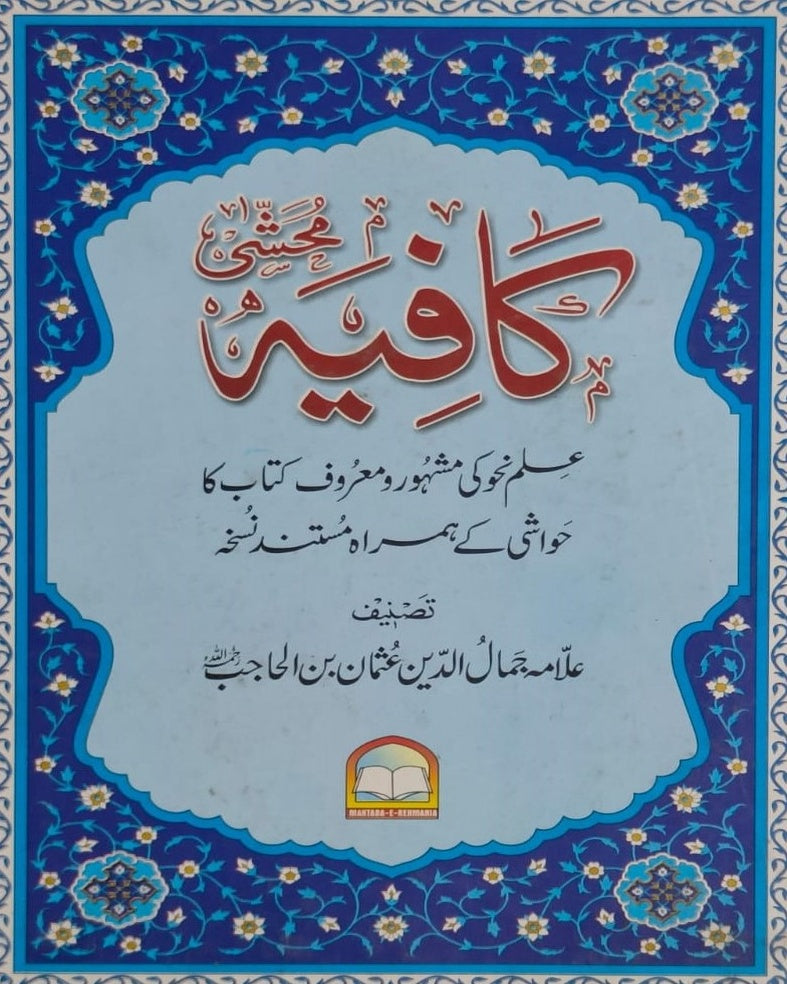 کَافِیَہ مُحَشّٰی
عِلم نحو کی مشہُور و معرُوف کتاب کا
حَواشی کے ہمراہ مُستند نُسخہ
تَصْنِیْف
علّامہ جَمالُ الدّین عُثمان بن الحاجب رحمہُ اللہ
MAKTABA-E-REHMANIA